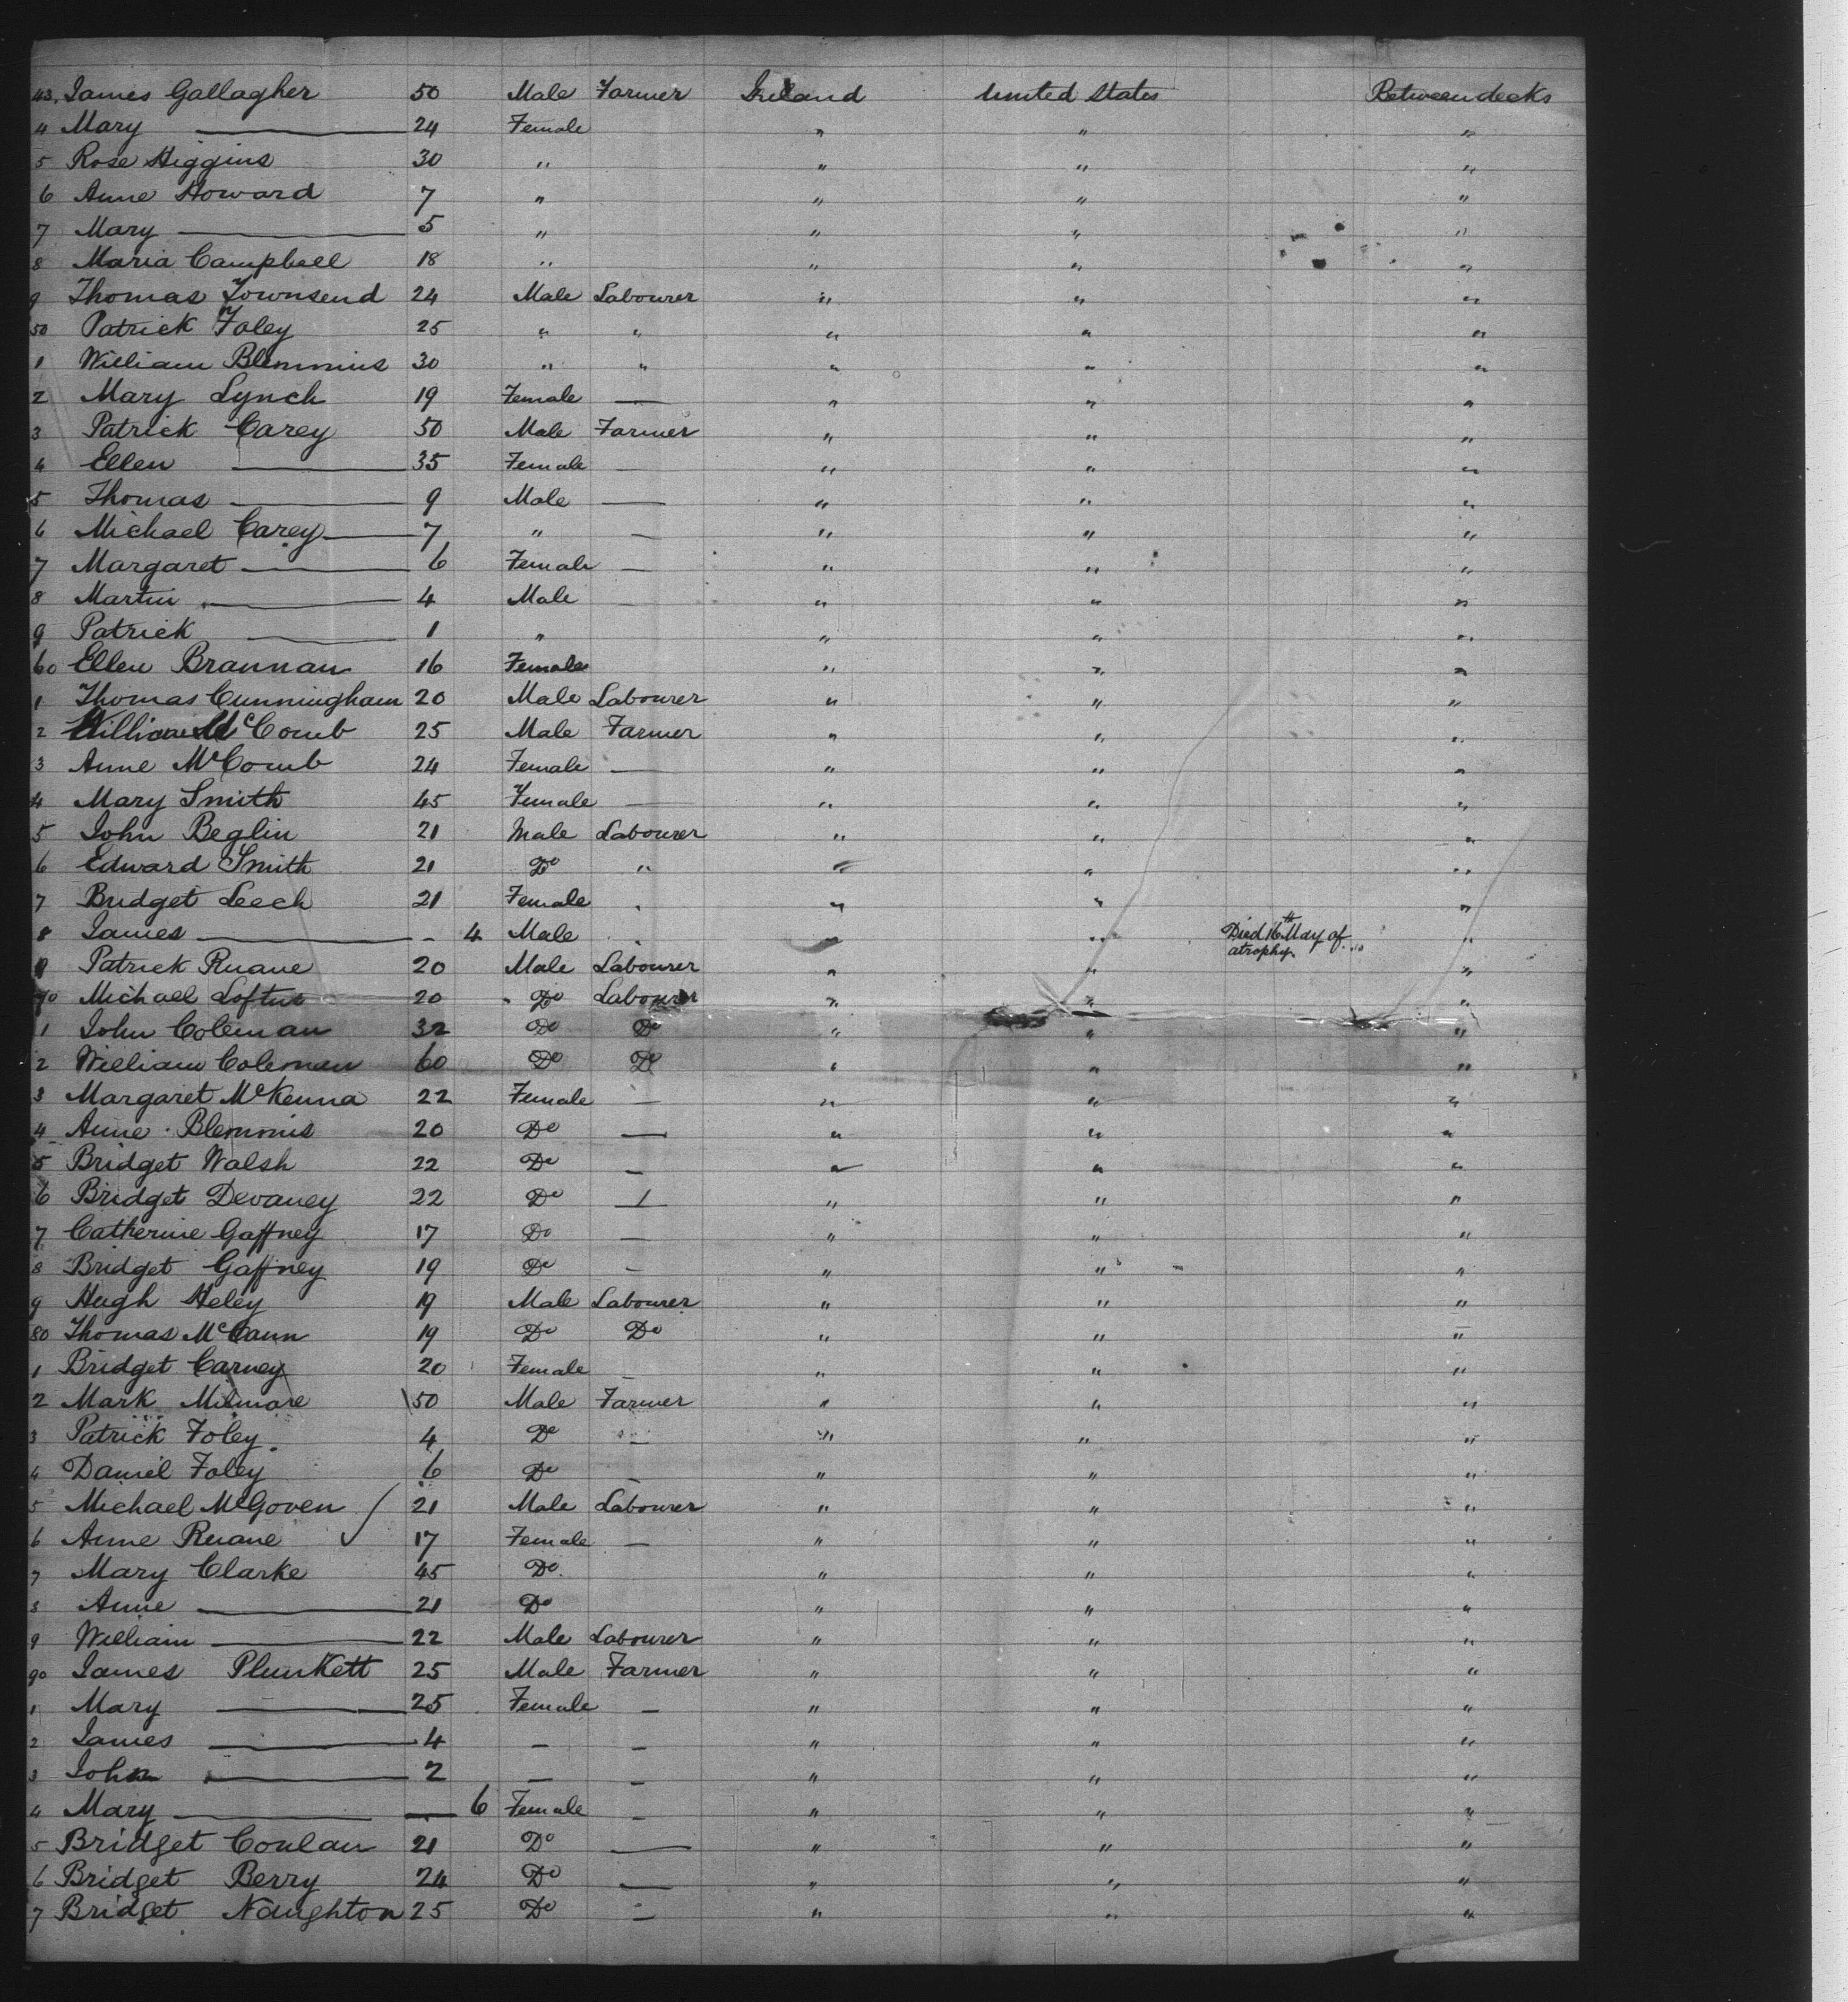 43. James Gallagher 50 Male Farmer Ireland United States Between decks
4 Mary —— 24 Female " " "
5 Rose Higgins 30 " " " "
6 Anne Howard 7 " " " "
7 Mary —— 5 " " " "
8 Maria Campbell 18 " " " "
9 Thomas Townsend 24 Male Labourer " " "
50 Patrick Foley 25 " " " " "
1 William Blemmius 30 " " " " "
2 Mary Lynch 19 Female — " " "
3 Patrick Carey 50 Male Farmer " " "
4 Ellen —— 35 Female — " " "
5 Thomas —— 9 Male — " " "
6 Michael Carey —— 7 " — " " "
7 Margaret —— 6 Female — " " "
8 Martin —— 4 Male — " " "
9 Patrick —— 1 " " " "
60 Ellen Brannan 16 Female " " "
1 Thomas Cunningham 20 Male Labourer " " "
2 William McComb 25 Male Farmer " " "
3 Anne McComb 24 Female — " " "
4 Mary Smith 45 Female — " " "
5 John Beglin 21 Male Labourer " " "
6 Edward Smith 21 Do " " " "
7 Bridget Leech 21 Female " " " "
8 James —— - 4 Male " " " Died 16th May of atrophy. "
9 Patrick Ruane 20 Male Labourer " " "
70 Michael Loftus 20 Do Labourer " " "
1 John Coleman 32 Do Do " " "
2 William Coleman 60 Do Do " " "
3 Margaret McKenna 22 Female — " " "
4 Anne Blemmis 20 Do — " " "
5 Bridget Walsh 22 Do — " " "
6 Bridget Devaney 22 Do — " " "
7 Catherine Gaffney 17 Do — " " "
8 Bridget Gaffney 19 Do — " " "
9 Hugh Heley 19 Male Labourer " " "
80 Thomas McCann 19 Do Do " " "
1 Bridget Carney 20 Female — " " "
2 Mark Milmore 50 Male Farmer " " "
3 Patrick Foley 4 Do — " " "
4 Daniel Foley 6 Do — " " "
5 Michael McGoven 21 Male Labourer " " "
6 Anne Ruane 17 Female — " " "
7 Mary Clarke 45 Do " " "
8 Anne —— 21 Do " " "
9 William —— 22 Male Labourer " " "
90 James Plunkett 25 Male Farmer " " "
1 Mary —— 25 Female — " " "
2 James —— 4 — — " " "
3 John —— 2 — — " " "
4 Mary —— — 6 Female — " " "
5 Bridget Conlan 21 Do — " " "
6 Bridget Berry 24 Do — " " "
7 Bridget Naughton 25 Do — " " "